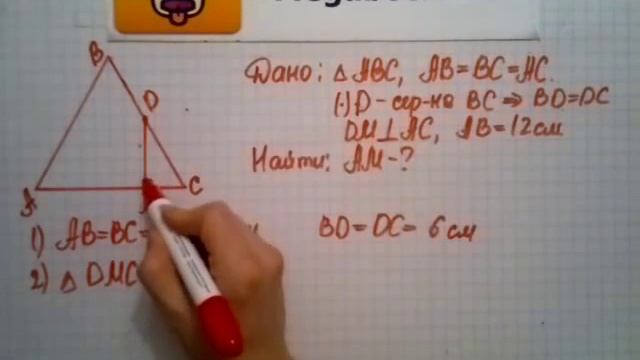 B
D
A
C
Дано: △ ABC, AB=BC=AC.
(·)D - сер-на BC ⇒ BD=DC
DM⊥AC, AB=12см
Найти: AM-?
1) AB=BC=
BD=DC= 6 см
2) △ DMC